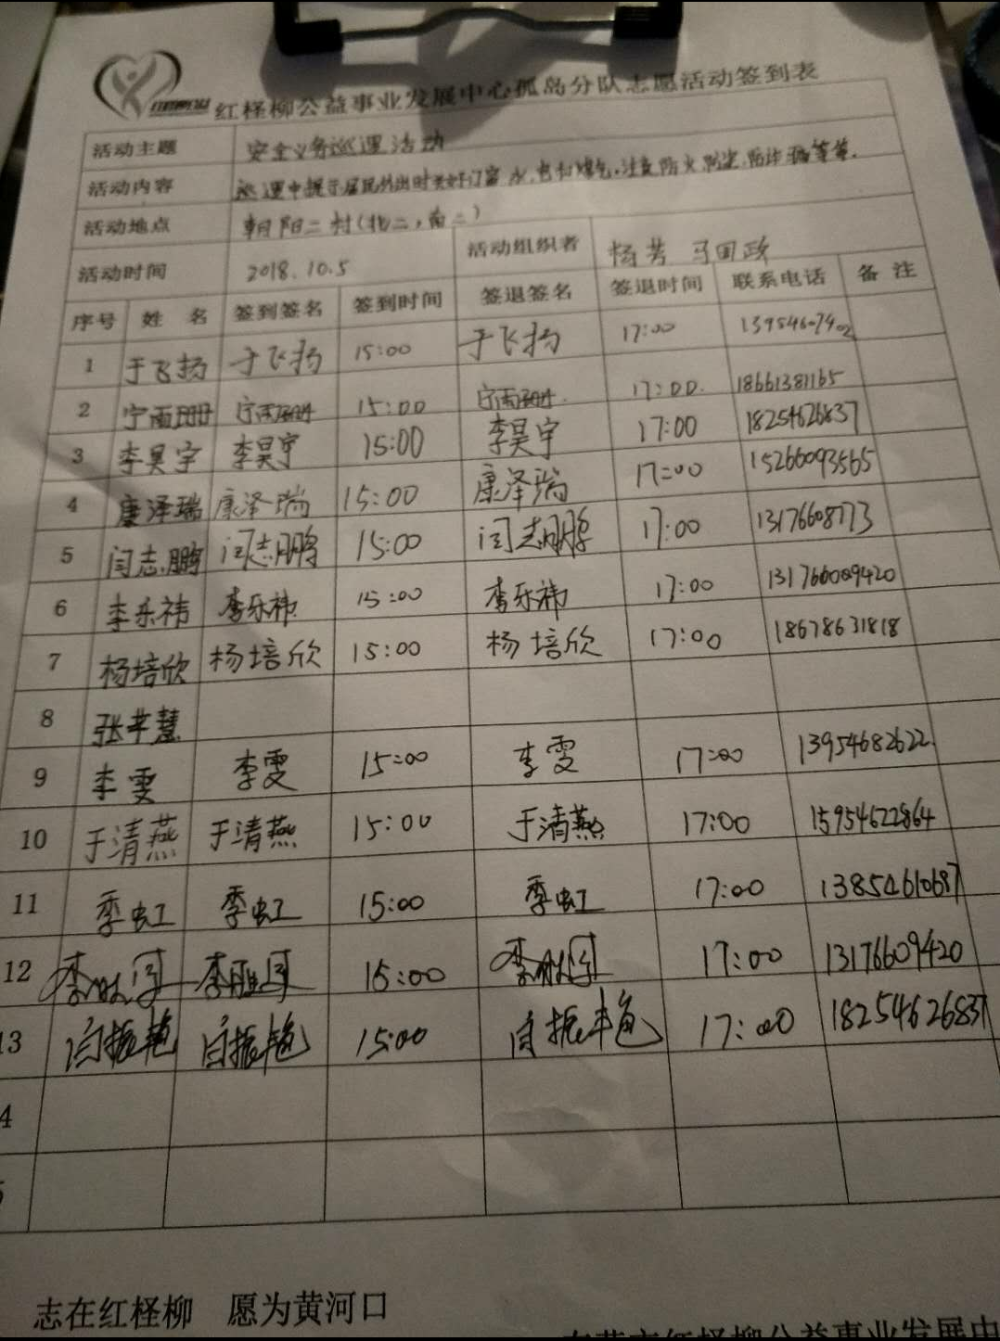 红柽柳公益事业发展中心孤岛分队志愿活动签到表
活动主题 安全义务巡逻活动
活动内容 巡逻中提示居民外出时关好门窗 水.电和煤气.注意防火.防盗.防诈骗等等.
活动地点 朝阳二村(北二,南二)
活动时间 2018.10.5 活动组织者 杨芳 马国政
序号 姓 名 签到签名 签到时间 签退签名 签退时间 联系电话 备 注
1 于飞扬 于飞扬 15:00 于飞扬 17:00 13954607402
2 宁雨珊 宁雨珊 15:00 宁雨珊. 17:00. 18661381165
3 李昊宇 李昊宇 15:00 李昊宇 17:00 18254626837
4 康泽瑞 康泽瑞 15:00 康泽瑞 17:00 15266093565
5 闫志鹏 闫志鹏 15:00 闫志鹏 17:00 13176608773
6 李乐祎 李乐祎 15:00 李乐祎 17:00 131766089420
7 杨培欣 杨培欣 15:00 杨培欣 17:00 18678631818
8 张芊慧
9 李雯 李雯 15:00 李雯 17:00 13954682622
10 于清燕 于清燕 15:00 于清燕 17:00 15954622864
11 季虹 季虹 15:00 季虹 17:00 13854610687
12 15:00 17:00 13176609420
13 白振艳 白振艳 15:00 白振艳 17:00 18254626837
4
5
志在红柽柳 愿为黄河口
红柽柳公益事业发展中